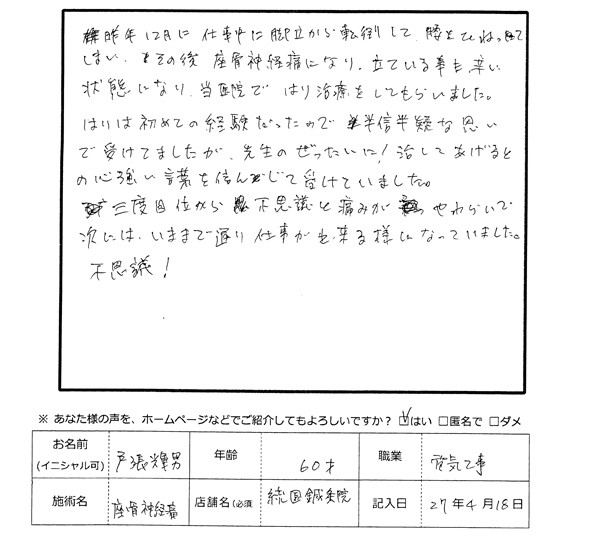 昨年12月に仕事中に脚立から転倒して、腰をひねって
しまい、その後座骨神経痛になり、立ている事も辛い
状態になり、当医院ではり治療をしてもらいました。
はりは初めての経験だったので半信半疑な思い
で受けてましたが、先生のぜったいに!治してあげると
の心強い言葉を信んじて受けていました。
三度目位から不思議と痛みがやわらいで
次には、いままで通り仕事が出来る様になっていました。
不思議!
※ あなた様の声を、ホームページなどでご紹介してもよろしいですか? ☑はい □匿名で □ダメ
お名前 (イニシャル可) 戸張 男 年齢 60才 職業 電気工事
施術名 座骨神経痛 店舗名(必須 鍼灸院 記入日 27年4月18日